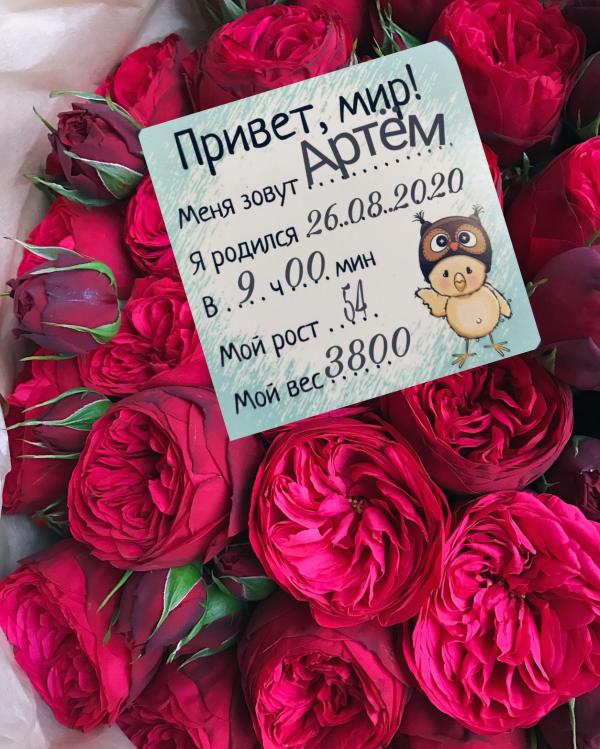 Привет, мир!
Меня зовут Артём
Я родился 26.08.2020
в 9 ч 00 мин
Мой рост 54
Мой вес 3800